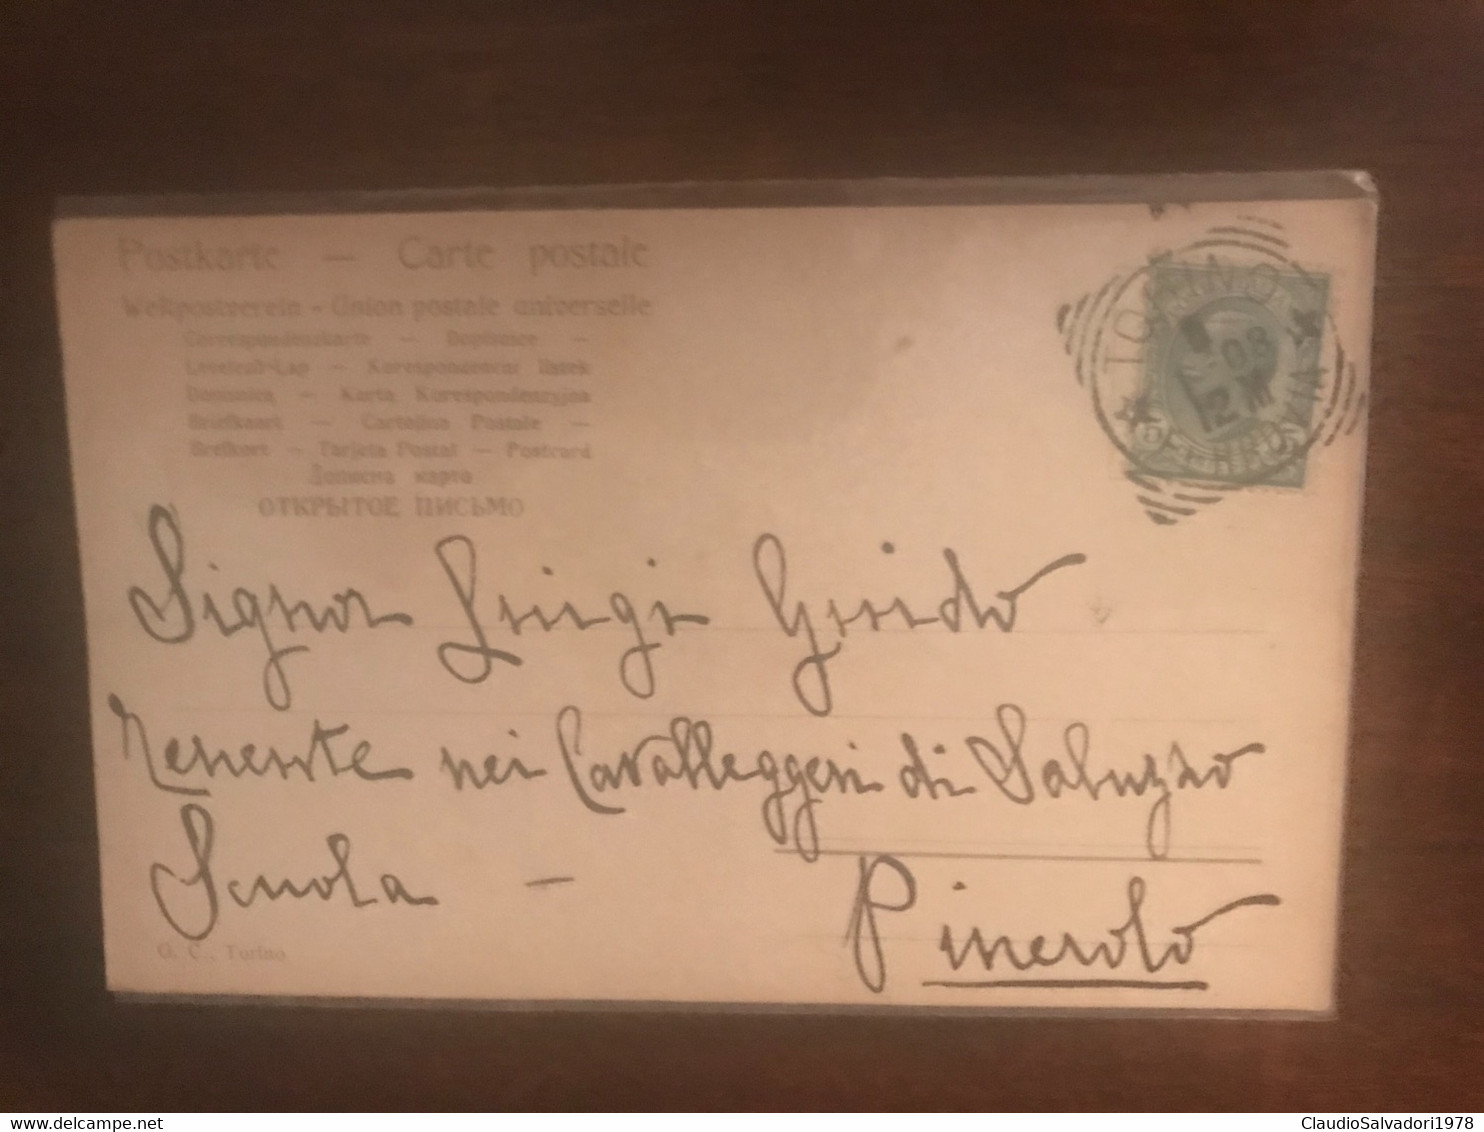 Postkarte — Carte postale
Weltpostverein - Union postale universelle
Correspondenzkarte — Dopisnice —
Levelező-Lap — Korespondencni listek
Dopisnica — Karta Korespondencyjna
Briefkaart — Cartolina Postale —
Brefkort — Tarjeta Postal — Postcard
Дописна карта
ОТКРЫТОЕ ПИСЬМО
TORINO
08
12 M
FERROVIA
Signor Luigi Guido
Tenente nei Cavalleggeri di Saluzzo
Scuola —
Pinerolo
G. C., Torino
delcampe.net
ClaudioSalvadori1978